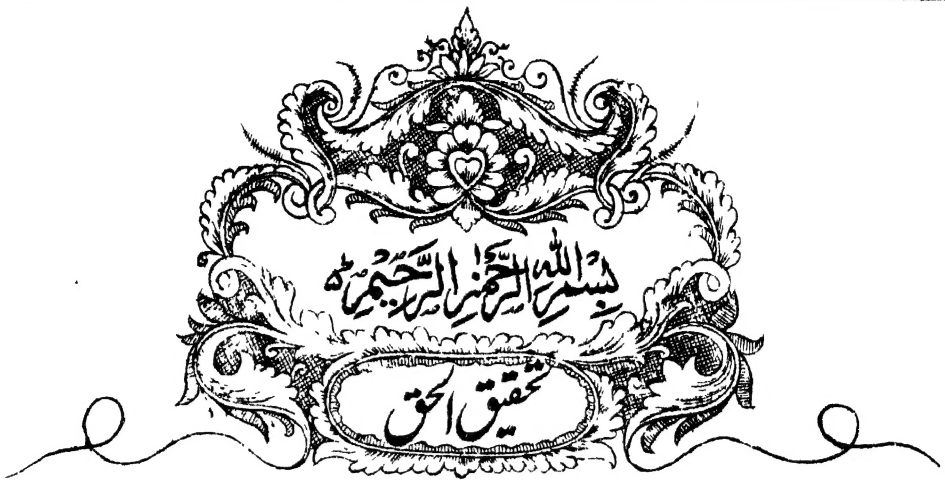 بِسْمِ اللهِ الرَّحْمٰنِ الرَّحِیْمِ ط
تحقیق الحق